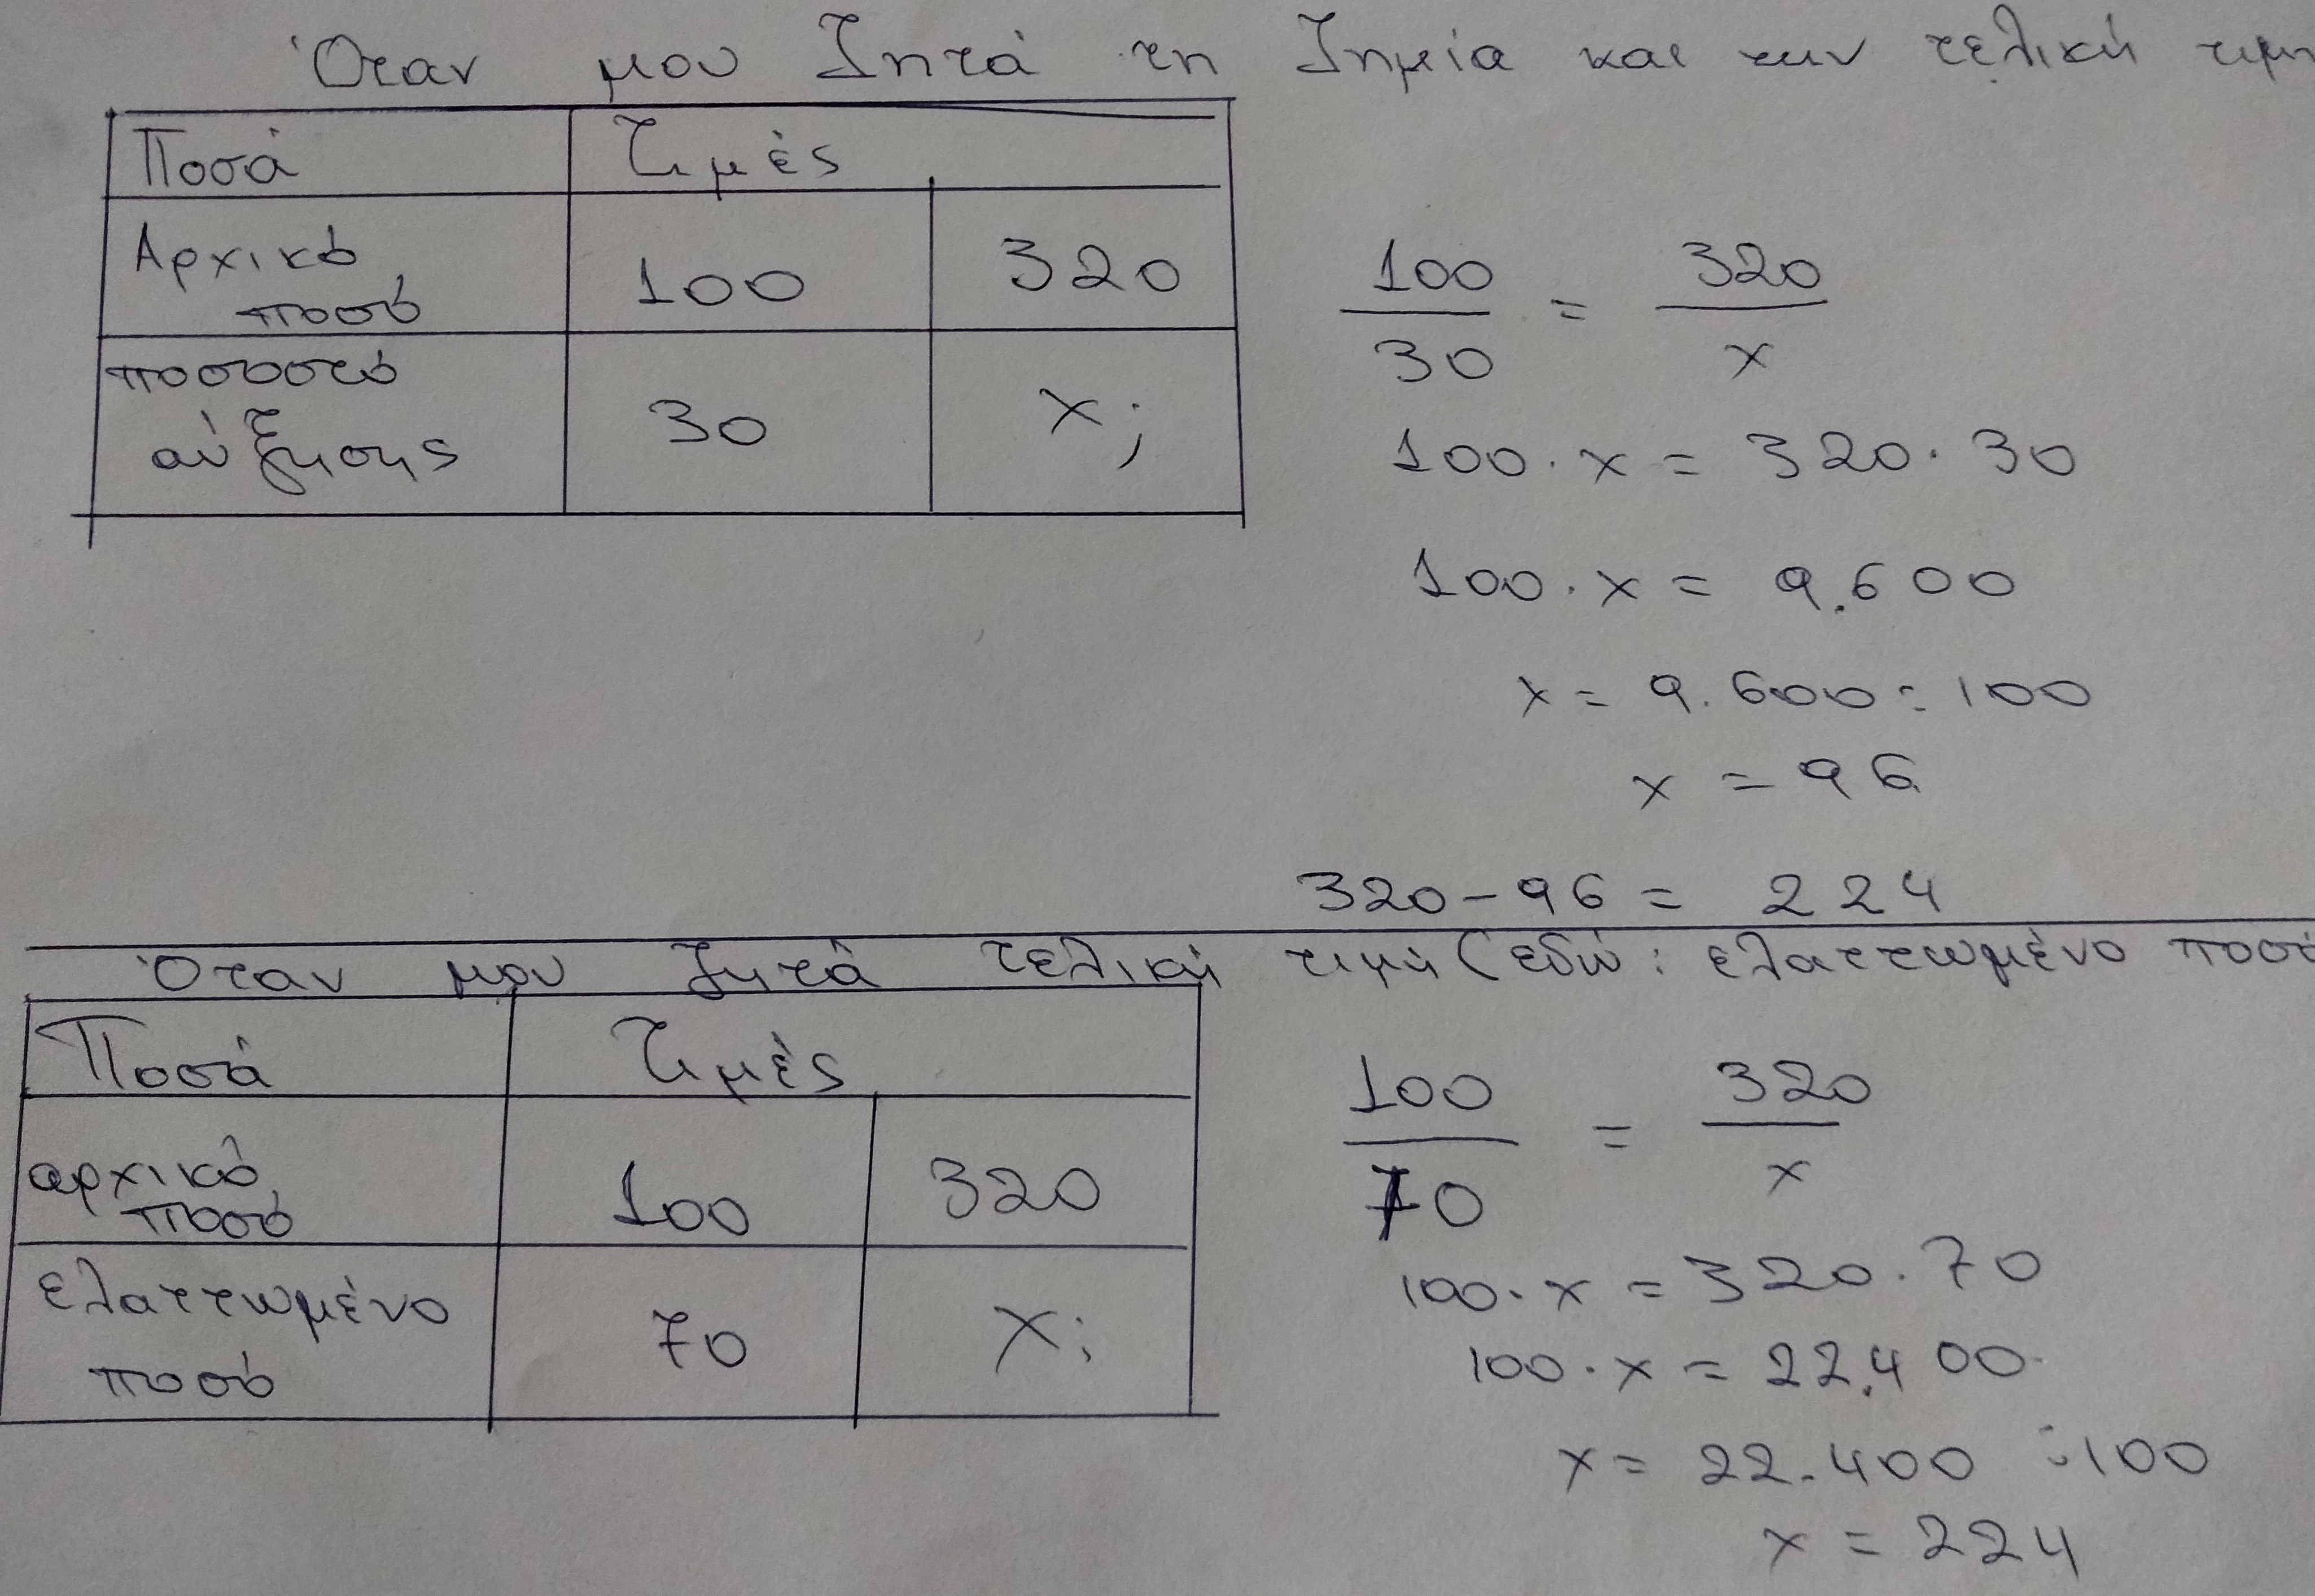 Όταν μου ζητά τη ζημία και την τελική τιμη
Ποσά Τιμές
Αρχικό ποσό 100 320
ποσοστό αύξησης 30 x;
100/30 = 320/x
100 · x = 320 · 30
100 · x = 9.600
x = 9.600 : 100
x = 96
320 - 96 = 224
Όταν μου ζητά τελική τιμή (εδώ: ελαττωμένο ποσό
Ποσά Τιμές
αρχικό ποσό 100 320
ελαττωμένο ποσό 70 x;
100/70 = 320/x
100 · x = 320 · 70
100 · x = 22.400
x = 22.400 : 100
x = 224